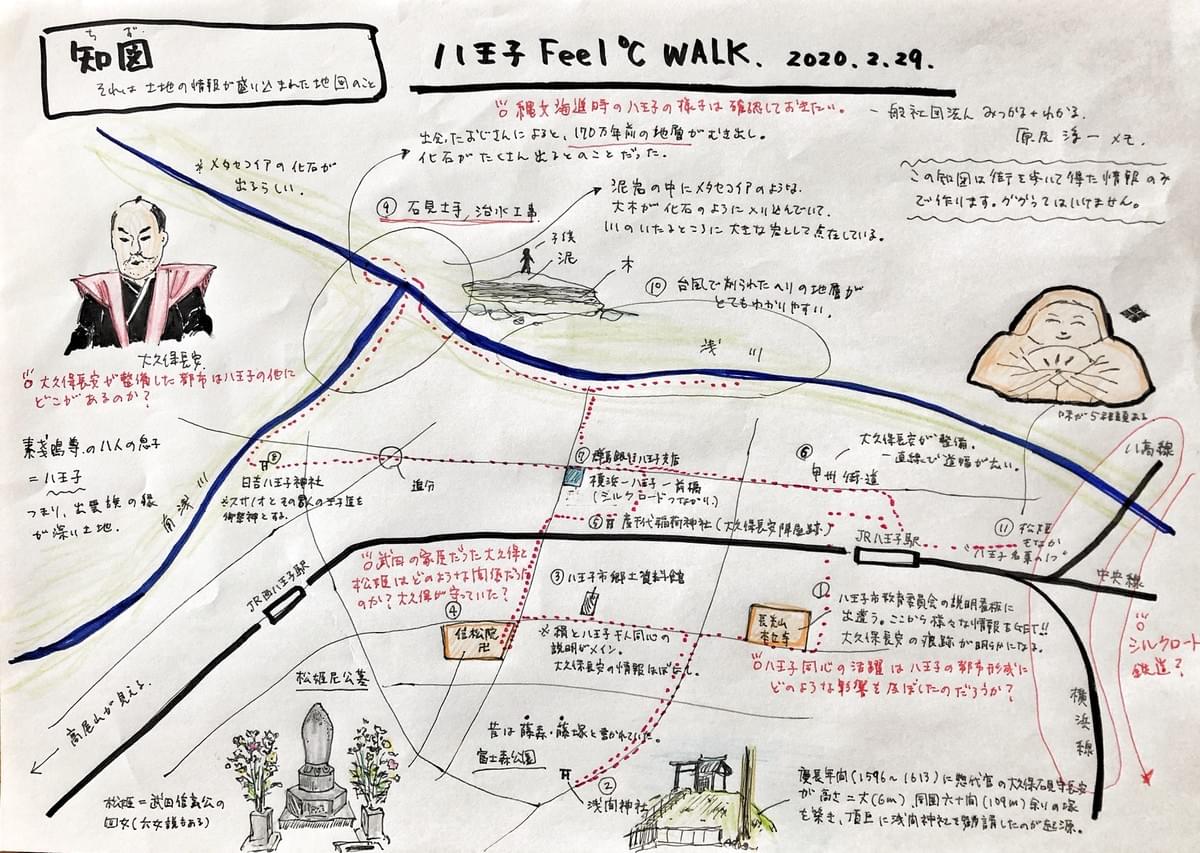 ちず
知図
それは土地の情報が盛り込まれた地図のこと
八王子 Feel℃ WALK. 2020.2.29.
縄文海進時の八王子の様子は確認しておきたい。
一般社団法人 みつかる+わかる
メモ.
出会ったおじさんによると、170万年前の地層がむき出し。
化石がたくさん出るとのことだった。
この知図は街を歩いて得た情報のみ
で作ります。ググってはいけません。
※メタセコイアの化石が
出るらしい。
⑨ 石見土手、治水工事
泥岩の中にメタセコイアのような
大木が化石のように入り込んでいて、
川のいたるところに大きな岩として点在している。
子供
泥
木
⑩ 台風で削られたヘリの地層が
とてもわかりやすい。
浅川
大久保長安
大久保長安が整備した都市は八王子の他に
どこがあるのか?
味が5種類ある
八高線
素戔嗚尊の八人の息子
=八王子
つまり、出雲族の縁
が深い土地.
南浅川
⑧
日吉八王子神社
※スサノオとその
御祭神とする。
追分
⑦ 群馬銀行八王子支店
横浜ー八王子ー前橋
(シルクロードつながり。)
⑥
大久保長安が整備。
一直線で道幅が太い。
甲州街道
⑤ 産千代稲荷神社(大久保長安陣屋跡)
JR八王子駅
⑪ 松姫
もなか
"八王子名菓の1つ"
中央線
JR西八王子駅
武田の家臣だった大久保と
松姫はどのような関係だろう
のか?大久保が守っていた?
③ 八王子市郷土資料館
④
信松院
卍
※絹と八王子千人同心の
説明がメイン。
大久保長安の情報はほぼなし
①
長安山
八王子市教育委員会の説明看板に
出遭う。ここから様々な情報をGET!!
大久保長安の痕跡が明らかになる。
八王子同心の活躍は八王子の都市形成に
どのような影響を及ぼしたのだろうか?
シルクロード
鉄道?
横浜線
高尾山が見える
松姫尼公墓
昔は藤森・藤塚と書かれていた。
富士森公園
②
浅間神社
松姫=武田信玄公の
四女(六女説もある)
慶長年間(1596~1613)に惣代官の大久保石見守長安
が高さ二丈(6m)、周囲六十間(109m)余りの塚
を築き、頂上に浅間神社を勧請したのが起源。